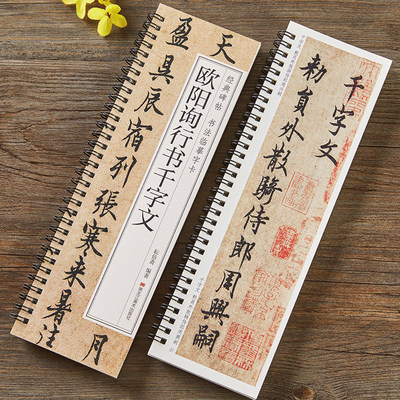 天
月
经典碑帖 书法临摹字卡
欧阳询行书千字文
编著
盈昃辰宿列張寒来暑往
千字文
勅員外散騎侍郎周興嗣